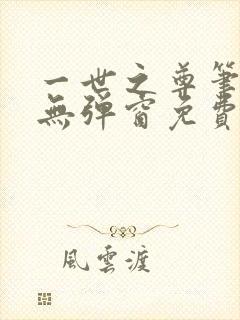 一世之尊筆
無彈窗免費
風雲渡